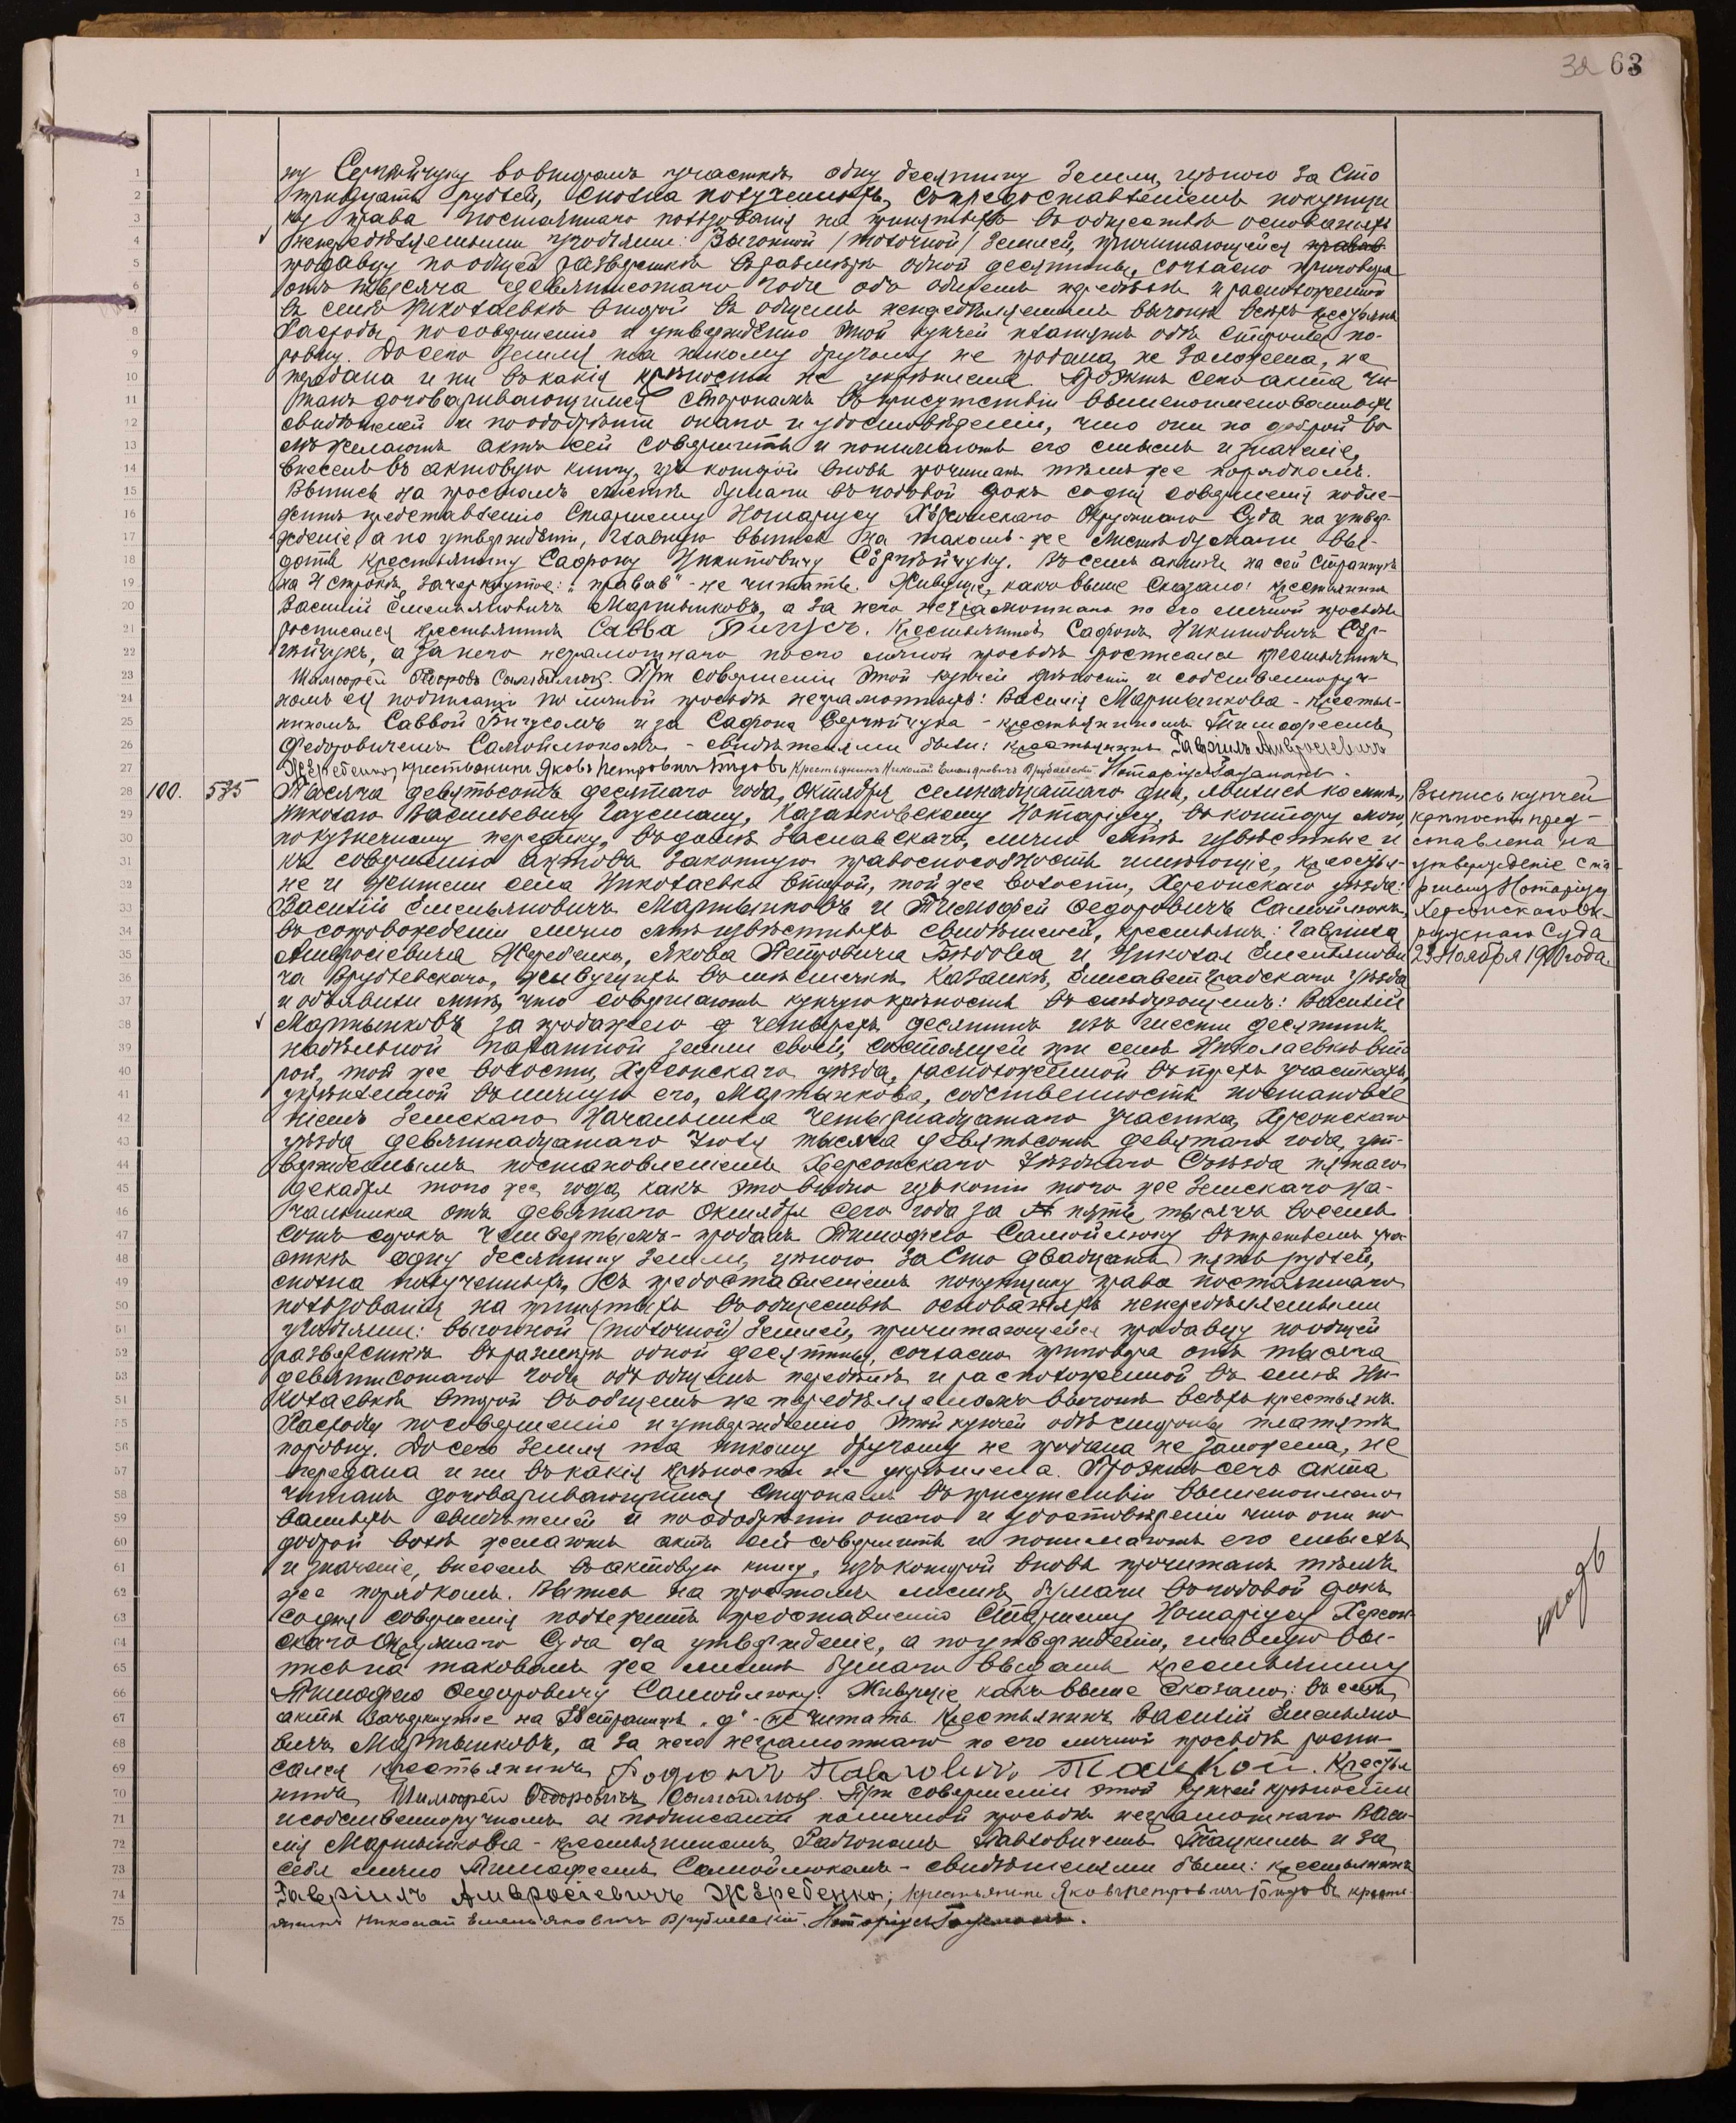 32 63
ну Сергѣйчуку вовторомъ участкѣ одну десятину земли, цѣною за сто
тридцать рублей, сполна полученныхъ, съ предоставленіемъ покупщи
ку права постояннаго пользованія на принятыхъ въ обществѣ основаніяхъ
непередѣляемыми угодьями: Выгонной /толочной/ землей, причитающейся правав
продавцу по общей разверсткѣ въ размѣрѣ одной десятины, согласно приговора
отъ тысяча девятисотаго года объ общемъ передѣлѣ и расположенной
въ селѣ Николаевкѣ второй въ общемъ непередѣляемомъ выгонѣ всѣхъ крестьянъ
Расходы по совершенію и утвержденію этой купчей платятъ обѣ стороны по-
ровну. До сего земля та никому другому не продана, не заложена, не
передана и ни въ какія крѣпости не укрѣплена. Проэктъ сего акта чи-
танъ договаривающимся сторонамъ въ присутствіи вышепоименованныхъ
свидѣтелей и по одобреніи онаго и удостовѣреніи, что они по доброй во
лѣ желаютъ актъ сей совершить и понимаютъ его смыслъ и значеніе,
внесенъ въ актовую книгу, изъ которой вновь прочитанъ тѣмъ же порядкомъ.
Выпись на простомъ листѣ бумаги въ годовой срокъ со дня совершенія подле-
житъ представленію Старшему Нотаріусу Херсонскаго Окружнаго Суда на утвер-
жденіе, а по утвержденіи, главную выпись на такомъ-же листѣ бумаги вы-
дать крестьянину Сафрону Никитовичу Сергѣйчуку. Въ семъ актѣ на сей страницѣ
на 4 строкѣ зачеркнутое: "правав" - не читать. Живущіе, какъ выше сказано: крестьянинъ
Василій Емельяновичъ Мартынковъ, а за него неграмотнаго по его личной просьбѣ
росписался крестьянинъ Савва Крестьянинъ Сафронъ Никитовичъ Сер-
гѣйчукъ, а за него неграмотнаго по его личной просьбѣ росписался крестьянинъ
Тимофей Федоровъ Самойлюкъ. При совершеніи этой купчей крѣпости и собственноруч-
номъ ея подписаніи по личной просьбѣ неграмотныхъ: Василія Мартынкова - крестья-
ниномъ Саввой и за Сафрона Сергѣйчука - крестьяниномъ Тимофеемъ
Федоровичемъ Самойлюкомъ - свидѣтелями были: крестьянинъ Гавріилъ Амвросіевичъ
Жеребенко, крестьянинъ Яковъ Петровичъ крестьянинъ Николай Емельяновичъ Врублевскій Нотаріусъ
100. 535 Тысяча девятьсотъ десятаго года, октября семнадцатаго дня, явились ко мнѣ,
Николаю Васильевичу Казанковскому Нотаріусу, въ контору мою,
по кузнечному переулку, въ домѣ Заславскаго, лично мнѣ извѣстные и
къ совершенію актовъ законную правоспособность имѣющіе, крестья-
не и жители села Николаевки второй, той же волости, Херсонскаго уѣзда:
Василій Емельяновичъ Мартынковъ и Тимофей Федоровичъ Самойлюкъ,
въ сопровожденіи лично мнѣ извѣстныхъ свидѣтелей, крестьянъ: Гавріила
Амвросіевича Жеребенко, Якова Петровича и Николая Емельянови
ча Врублевскаго, живущихъ въ мѣстечкѣ Казанкѣ, Елисаветградскаго уѣзда
и объявили мнѣ, что совершаютъ купчую крѣпость въ слѣдующемъ: Василій
Мартынковъ за продажею д четырехъ десятинъ изъ шести десятинъ
надѣльной пахатной земли своей, состоящей при селѣ Николаевкѣ вто
рой, той же волости, Херсонскаго уѣзда, расположенной въ трехъ участкахъ,
укрѣпленной въ личную его, Мартынкова, собственность постановле
ніемъ Земскаго Начальника четырнадцатаго участка, Херсонскаго
уѣзда девятнадцатаго Іюля тысяча девятьсотъ девятаго года, утв-
вержденнымъ постановленіемъ Херсонскаго Уѣзднаго Съѣзда пятаго
декабря того же года, какъ это видно изъ копіи того же Земскаго На-
чальника отъ девятаго Октября сего года за № пять тысячъ восемь
сотъ сорокъ четвертымъ - продалъ Тимофею Самойлюку въ третьемъ уча
сткѣ одну десятину земли, цѣною за сто двадцать пять рублей,
сполна полученныхъ, съ предоставленіемъ покупщику права постояннаго
пользованія на принятыхъ въ обществѣ основаніяхъ непередѣляемыми
угодьями: выгонной (толочной) землей, причитающейся продавцу по общей
разверсткѣ въ размѣрѣ одной десятины, согласно приговора отъ тысяча
девятисотаго года объ общемъ передѣлѣ и расположенной въ селѣ Ни-
колаевкѣ второй въ общемъ не передѣляемомъ выгонѣ всѣхъ крестьянъ.
Расходы по совершенію и утвержденію этой купчей обѣ стороны платятъ
поровну. До сего земля та никому другому не продана не заложена, не
передана и ни въ какія крѣпости не укрѣплена. Проэктъ сего акта
читанъ договаривающимся сторонамъ въ присутствіи вышепоимено
ванныхъ свидѣтелей и по одобреніи онаго и удостовѣреніи что они по
доброй волѣ желаютъ актъ сей совершить и понимаютъ его смыслъ
и значеніе, внесенъ въ актовую книгу, изъ которой вновь прочитанъ тѣмъ
же порядкомъ. Выпись на простомъ листѣ бумаги въ годовой срокъ
со дня совершенія подлежитъ представленію Старшему Нотаріусу Херсон-
скаго Окружнаго Суда на утвержденіе, а по утвержденіи, главную вы-
пись на таковомъ же листѣ бумаги выдать крестьянину
Тимофею Федоровичу Самойлюку. Живущіе какъ выше сказано: въ семъ
актѣ зачеркнутое на 38 "д" - не читать. Крестьянинъ Василій Емельяно
вичъ Мартынковъ, а за него неграмотнаго по его личной просьбѣ роспи
сался крестьянинъ Родіонъ Павловичъ Крестья
нинъ Тимофей Федоровичъ Самойлюкъ. При совершеніи этой купчей крѣпости
и собственноручномъ ея подписаніи по личной просьбѣ неграмотнаго Васи-
лія Мартынкова - крестьяниномъ Родіономъ Павловичемъ и за
себя лично Тимофеемъ Самойлюкомъ - свидѣтелями были: крестьянинъ
Гавріилъ Амвросіевичъ Жеребенко; крестьянинъ Яковъ Петровичъ кресть
янинъ Николай Емельяновичъ Врублевскій. Нотаріусъ
Выпись купчей
крѣпости пред-
ставлена на
утвержденіе Ста
ршему Нотаріусу
Херсонскаго Ок-
ружнаго Суда
23 Ноября 1910 года.